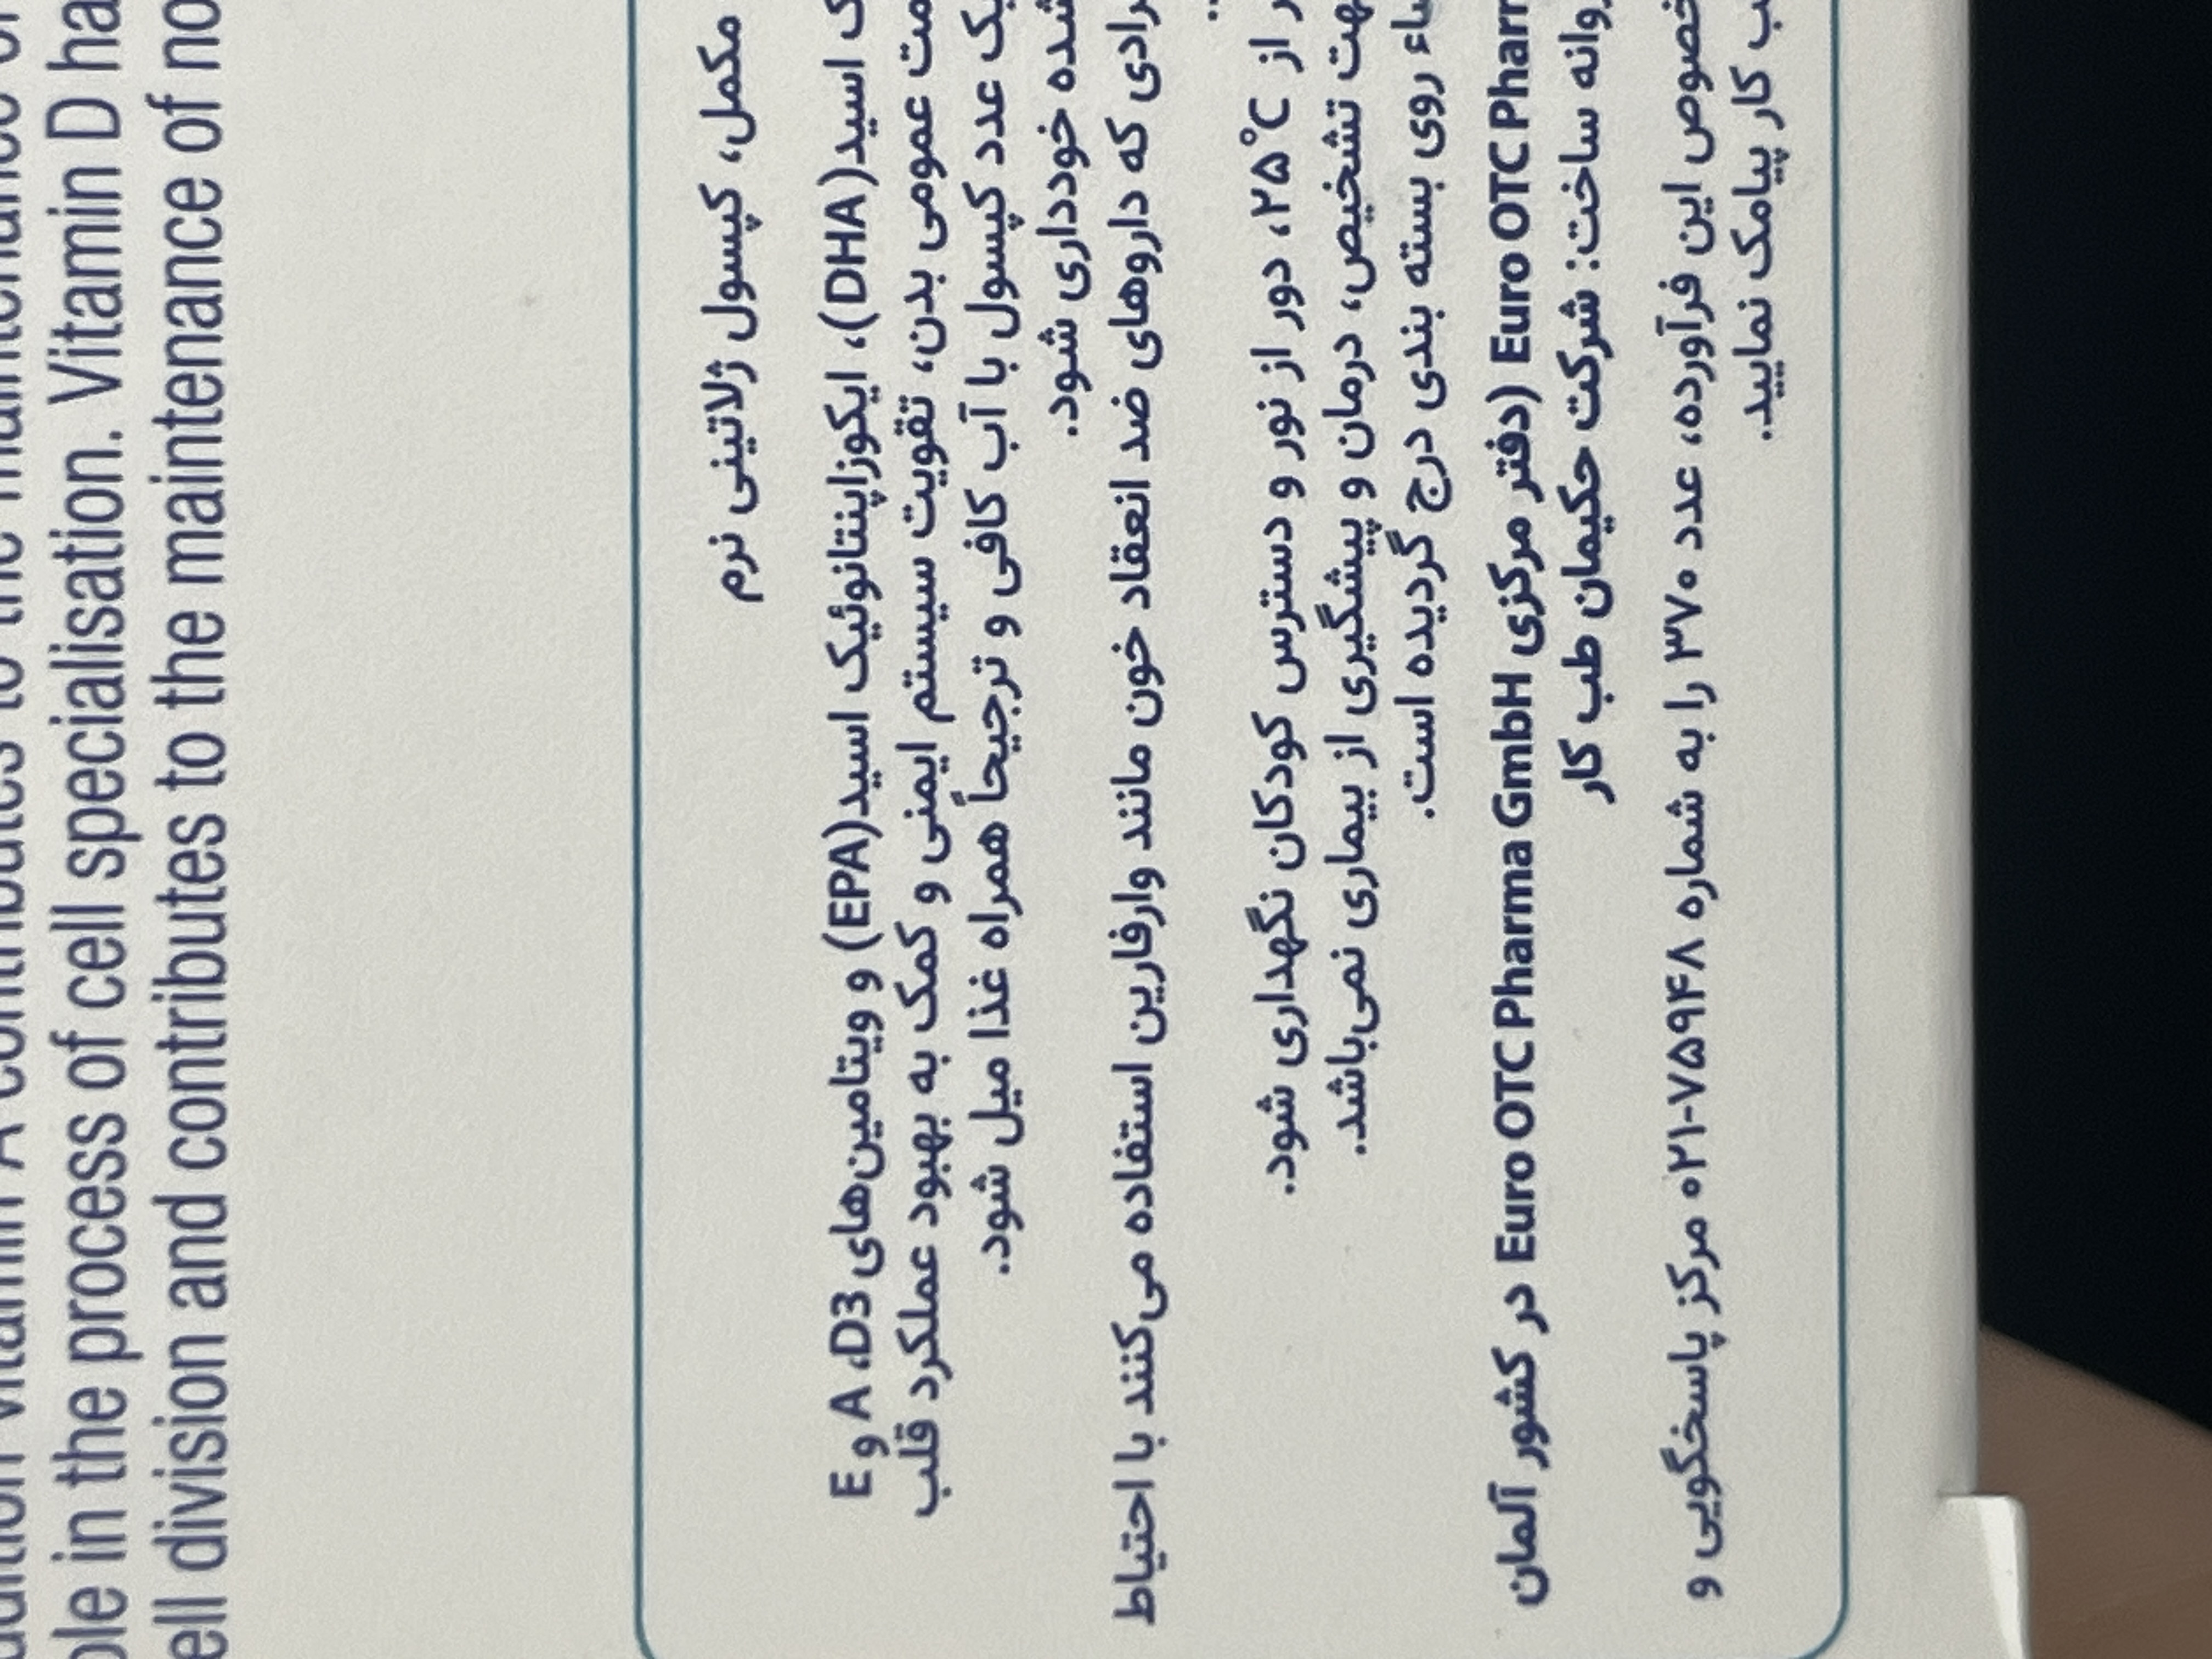 ole in the process of cell specialisation. Vitamin D ha
ell division and contributes to the maintenance of no
مکمل، کپسول ژلاتینی نرم
اسید(DHA)، ایکوزاپنتانوئیک اسید(EPA) و ویتامین‌های A ،D3 و E
عمومی بدن، تقویت سیستم ایمنی و کمک به بهبود عملکرد قلب
عدد کپسول با آب کافی و ترجیحاً همراه غذا میل شود.
شده خودداری شود.
که داروهای ضد انعقاد خون مانند وارفارین استفاده می‌کنند با احتیاط
از ۲۵°C، دور از نور و دسترس کودکان نگهداری شود.
تشخیص، درمان و پیشگیری از بیماری نمی‌باشد.
روی بسته بندی درج گردیده است.
Euro OTC Pharm (دفتر مرکزی Euro OTC Pharma GmbH در کشور آلمان
ساخت: شرکت حکیمان طب کار
این فرآورده، عدد ۳۷۰ را به شماره ۰۲۱-۷۵۹۴۸ مرکز پاسخگویی و
کار پیامک نمایید.